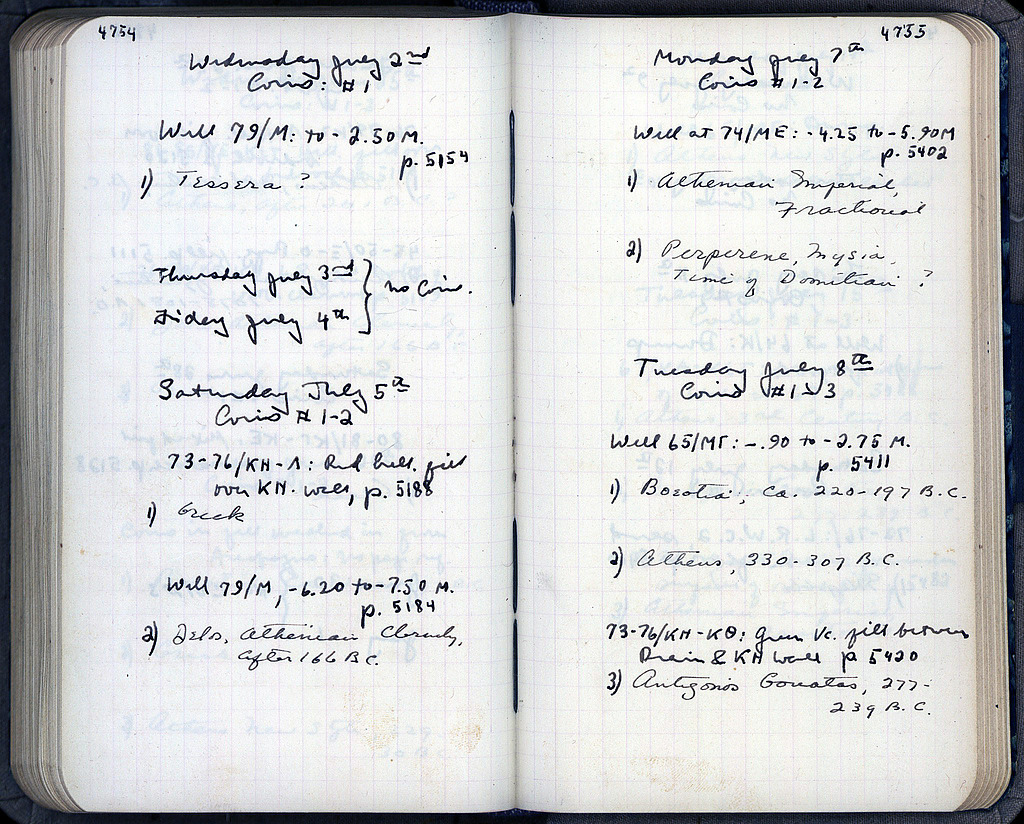 4754
Wednesday July 2nd
Coins: #1
Well 79/M: to -2.50 M.
p. 5154
1) Tessera ?
Thursday July 3rd
Friday July 4th } No Coins.
Saturday July 5th
Coins #1-2
73-76/KH-Λ: Red bell. fill
over KH. wall, p. 5188
1) Greek
Well 79/M, -6.20 to -7.50 M.
p. 5184
2) Delos, Athenian Cleruchy,
after 166 B.C.
4755
Monday July 7th
Coins #1-2
Well at 74/ME: -4.25 to -5.90M
p. 5402
1) Athenian Imperial,
Fractional
2) Perperene, Mysia,
Time of Domitian ?
Tuesday July 8th
Coins #1-3
Well 65/MΓ: -.90 to -2.75 M.
p. 5411
1) Boeotia, Ca. 220-197 B.C.
2) Athens, 330-307 B.C.
73-76/KH-KΘ: Green Vc. fill between
Drain & KH wall p 5420
3) Antigonos Gonatas, 277-
239 B.C.